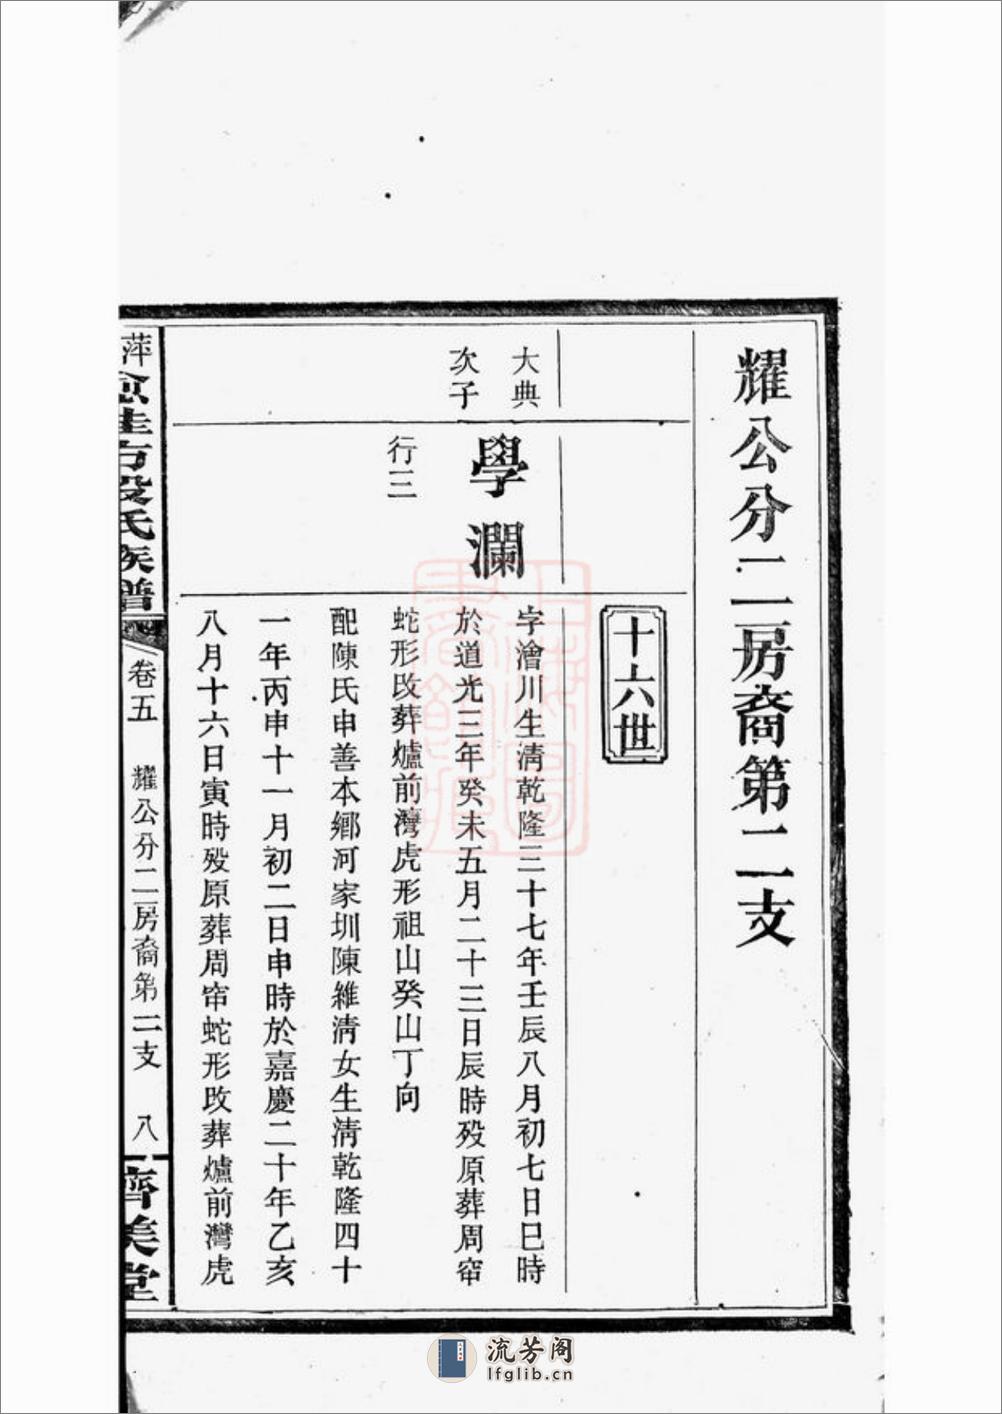 耀公分二房裔第二支
十六世
大典
次子
學瀾
行三
字澮川生淸乾隆三十七年壬辰八月初七日巳時
於道光三年癸未五月二十三日辰時歿原葬周帘
蛇形改葬爐前灣虎形祖山癸山丁向
配陳氏申善本鄉河家圳陳維淸女生淸乾隆四十
一年丙申十一月初二日申時於嘉慶二十年乙亥
八月十六日寅時歿原葬周帘蛇形改葬爐前灣虎
萍 段氏族譜
卷五
耀公分二房裔第二支
八
齊美堂
流芳阁
lfglib.cn